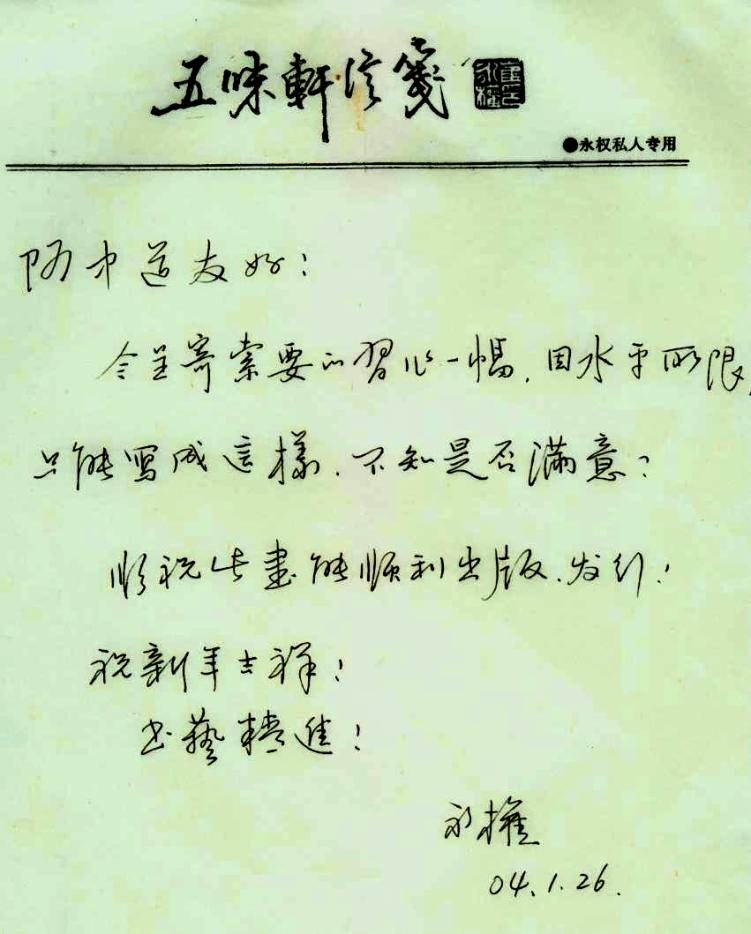 五味軒信箋
●永权私人专用
阿中道友好：
今呈寄索要的習作一幅，因水平所限，
只能寫成這樣，不知是否滿意？
順祝此書能順利出版、发行！
祝新年吉祥！
书藝精進！
永權
04.1.26.